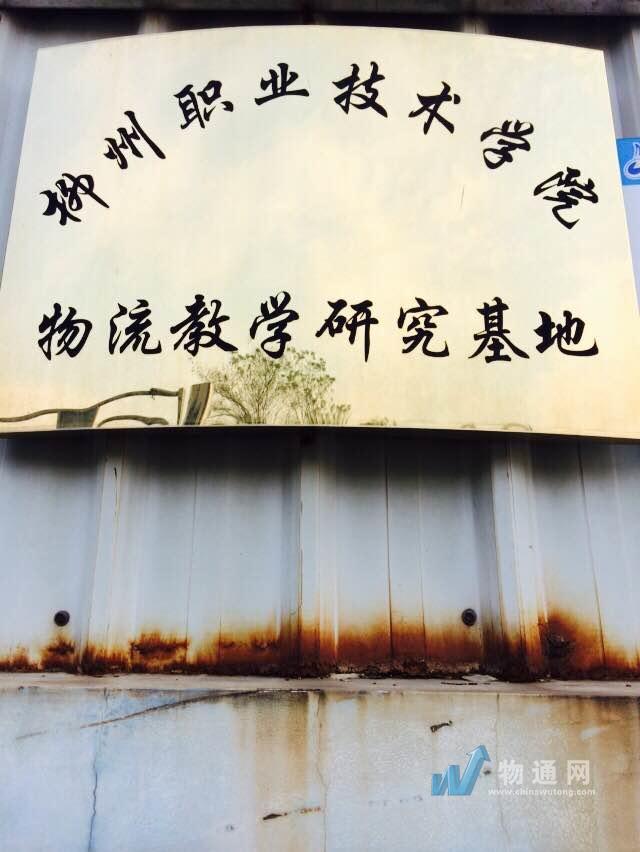 柳州职业技术学院
物流教学研究基地
物通网
www.chinawutong.com